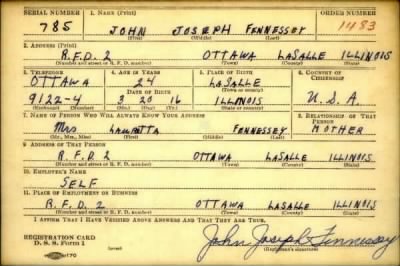 SERIAL NUMBER 1. NAME (Print) ORDER NUMBER
785 JOHN JOSEPH FENNESSEY 1483
(First) (Middle) (Last)
2. ADDRESS (Print)
R.F.D. 2 OTTAWA LASALLE ILLINOIS
(Number and street or R. F. D. number) (Town) (County) (State)
3. TELEPHONE 4. AGE IN YEARS 5. PLACE OF BIRTH 6. COUNTRY OF CITIZENSHIP
OTTAWA 24 LASALLE
DATE OF BIRTH (Town or county)
9122-4 3 20 16 ILLINOIS U.S.A.
(Exchange) (Number) (Mo.) (Day) (Yr.) (State or country)
7. NAME OF PERSON WHO WILL ALWAYS KNOW YOUR ADDRESS 8. RELATIONSHIP OF THAT PERSON
Mrs LAURETTA FENNESSEY MOTHER
(Mr., Mrs., Miss) (First) (Middle) (Last)
9. ADDRESS OF THAT PERSON
R.F.D. 2 OTTAWA LASALLE ILLINOIS
(Number and street or R. F. D. number) (Town) (County) (State)
10. EMPLOYER'S NAME
SELF
11. PLACE OF EMPLOYMENT OR BUSINESS
R.F.D. 2 OTTAWA LASALLE ILLINOIS
(Number and street or R. F. D. number) (Town) (County) (State)
I AFFIRM THAT I HAVE VERIFIED ABOVE ANSWERS AND THAT THEY ARE TRUE.
REGISTRATION CARD
D. S. S. Form 1 John Joseph Fennessy
(Registrant's signature)